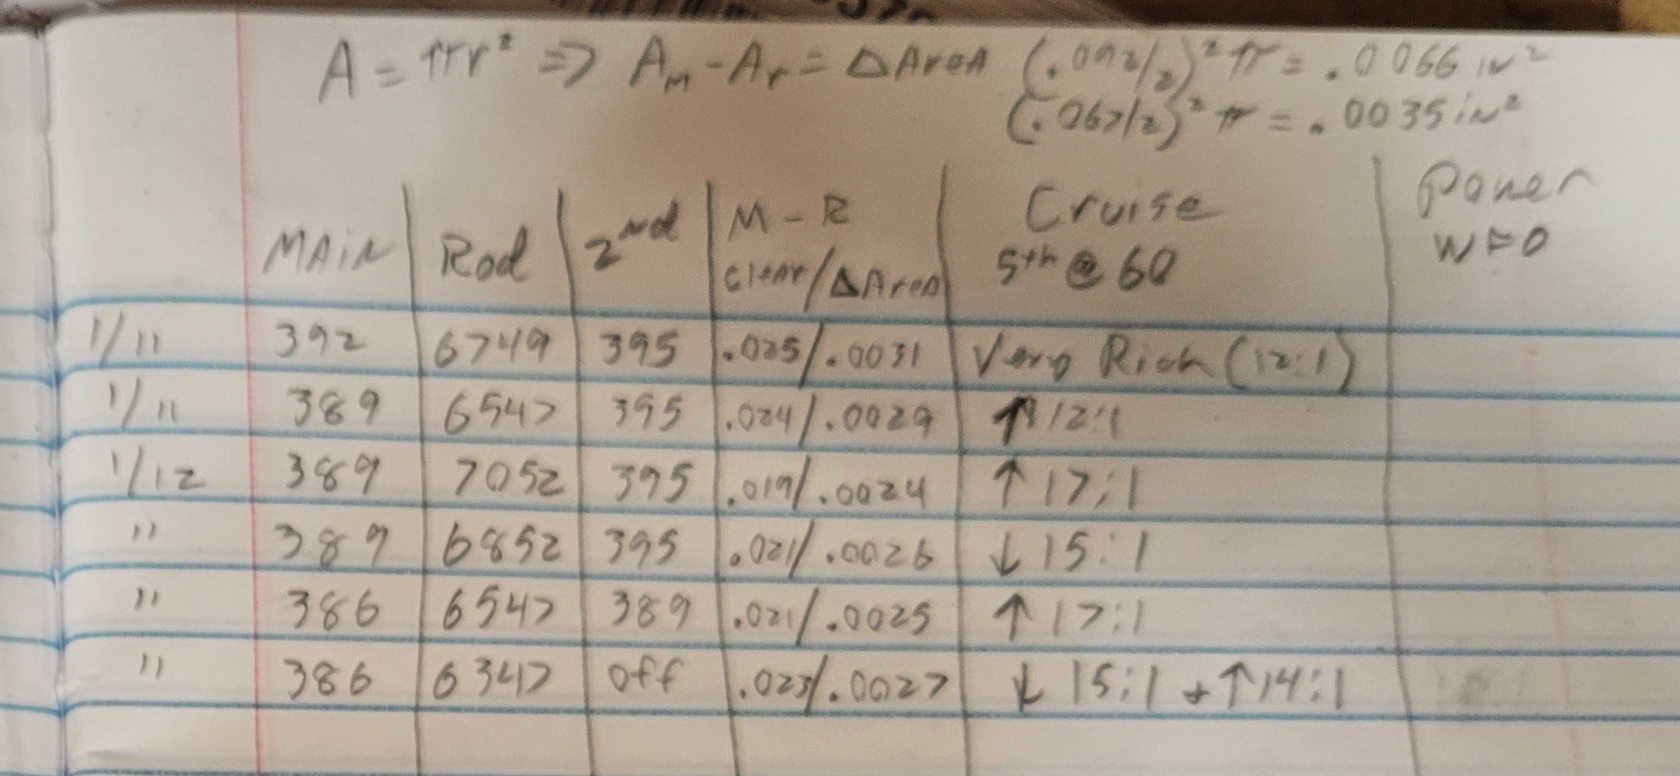 A = πr² => Am - Ar = ΔAreA (.092/2)² π = .0066 in²
(.067/2)² π = .0035 in²
MAin Rod 2nd M - R Clear/ΔArea Cruise 5th @ 60 Power
1/11 392 6749 395 .025/.0031 Very Rich (12:1)
1/11 389 6547 395 .024/.0029 ↑ 12:1
1/12 389 7052 395 .019/.0024 ↑ 17:1
" 389 6852 395 .021/.0026 ↓ 15:1
" 386 6547 389 .021/.0025 ↑ 17:1
" 386 6347 Off .023/.0027 ↓ 15:1 + ↑ 14:1